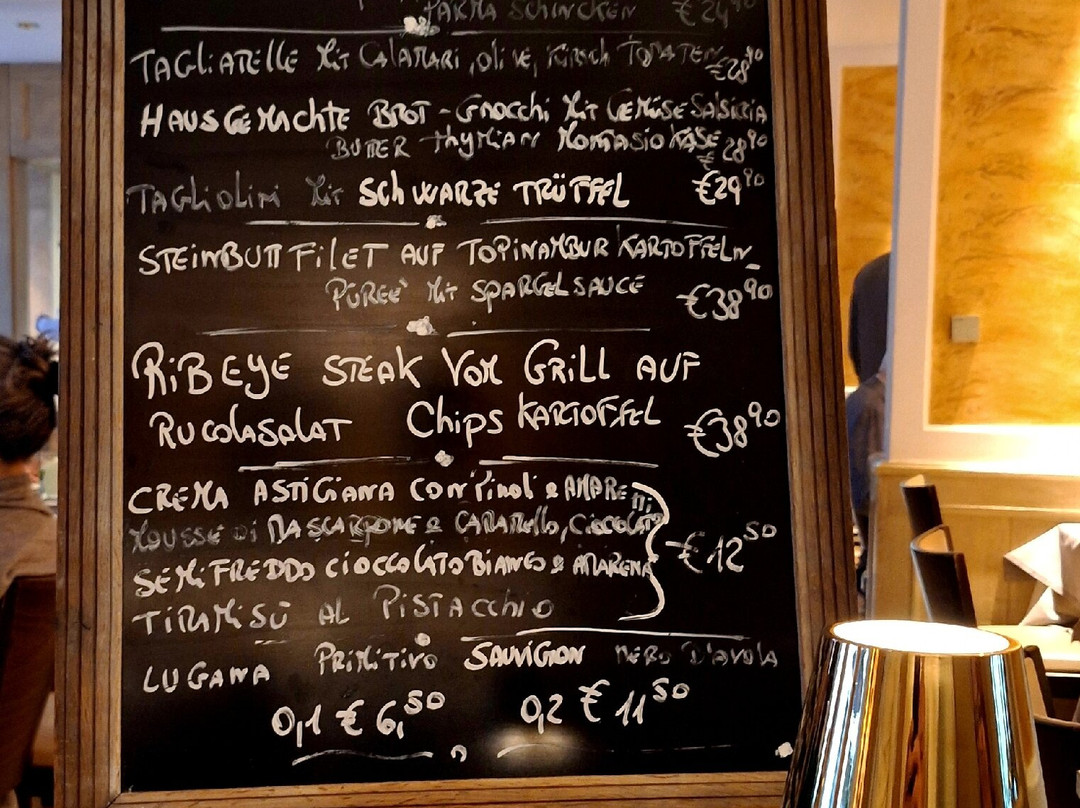 PARMA SCHINCKEN €24⁹⁰
TAGLIATELLE Mit CALAMARI, Olive, Kirsch TOMATEN €28⁹⁰
HAUSGEMACHTE BROT-GNOCCHI Mit GEMÜSE SALSICCIA
BUTTER THYMIAN MONTASIO KÄSE €28⁹⁰
TAGLIOLINI Mit SCHWARZE TRÜFFEL €29⁹⁰
STEINBUTT FILET AUF TOPINAMBUR KARTOFFELN-
PÜREÈ Mit SPARGELSAUCE €38⁹⁰
RIBEYE STEAK VOM GRILL AUF
RUCOLASALAT CHIPS KARTOFFEL €38⁹⁰
CREMA ASTIGIANA CON Pinoli e AMARETTI
MOUSSE DI MASCARPONE e CARAMELLO, CIOCCOLATO
SEMIFREDDO CIOCCOLATO BIANCO e AMARENA €12⁵⁰
TIRAMISÙ AL PISTACCHIO
LUGANA PRIMITIVO SAUVIGION NERO D'AVOLA
0,1 € 6,⁵⁰ 0,2 € 11⁵⁰